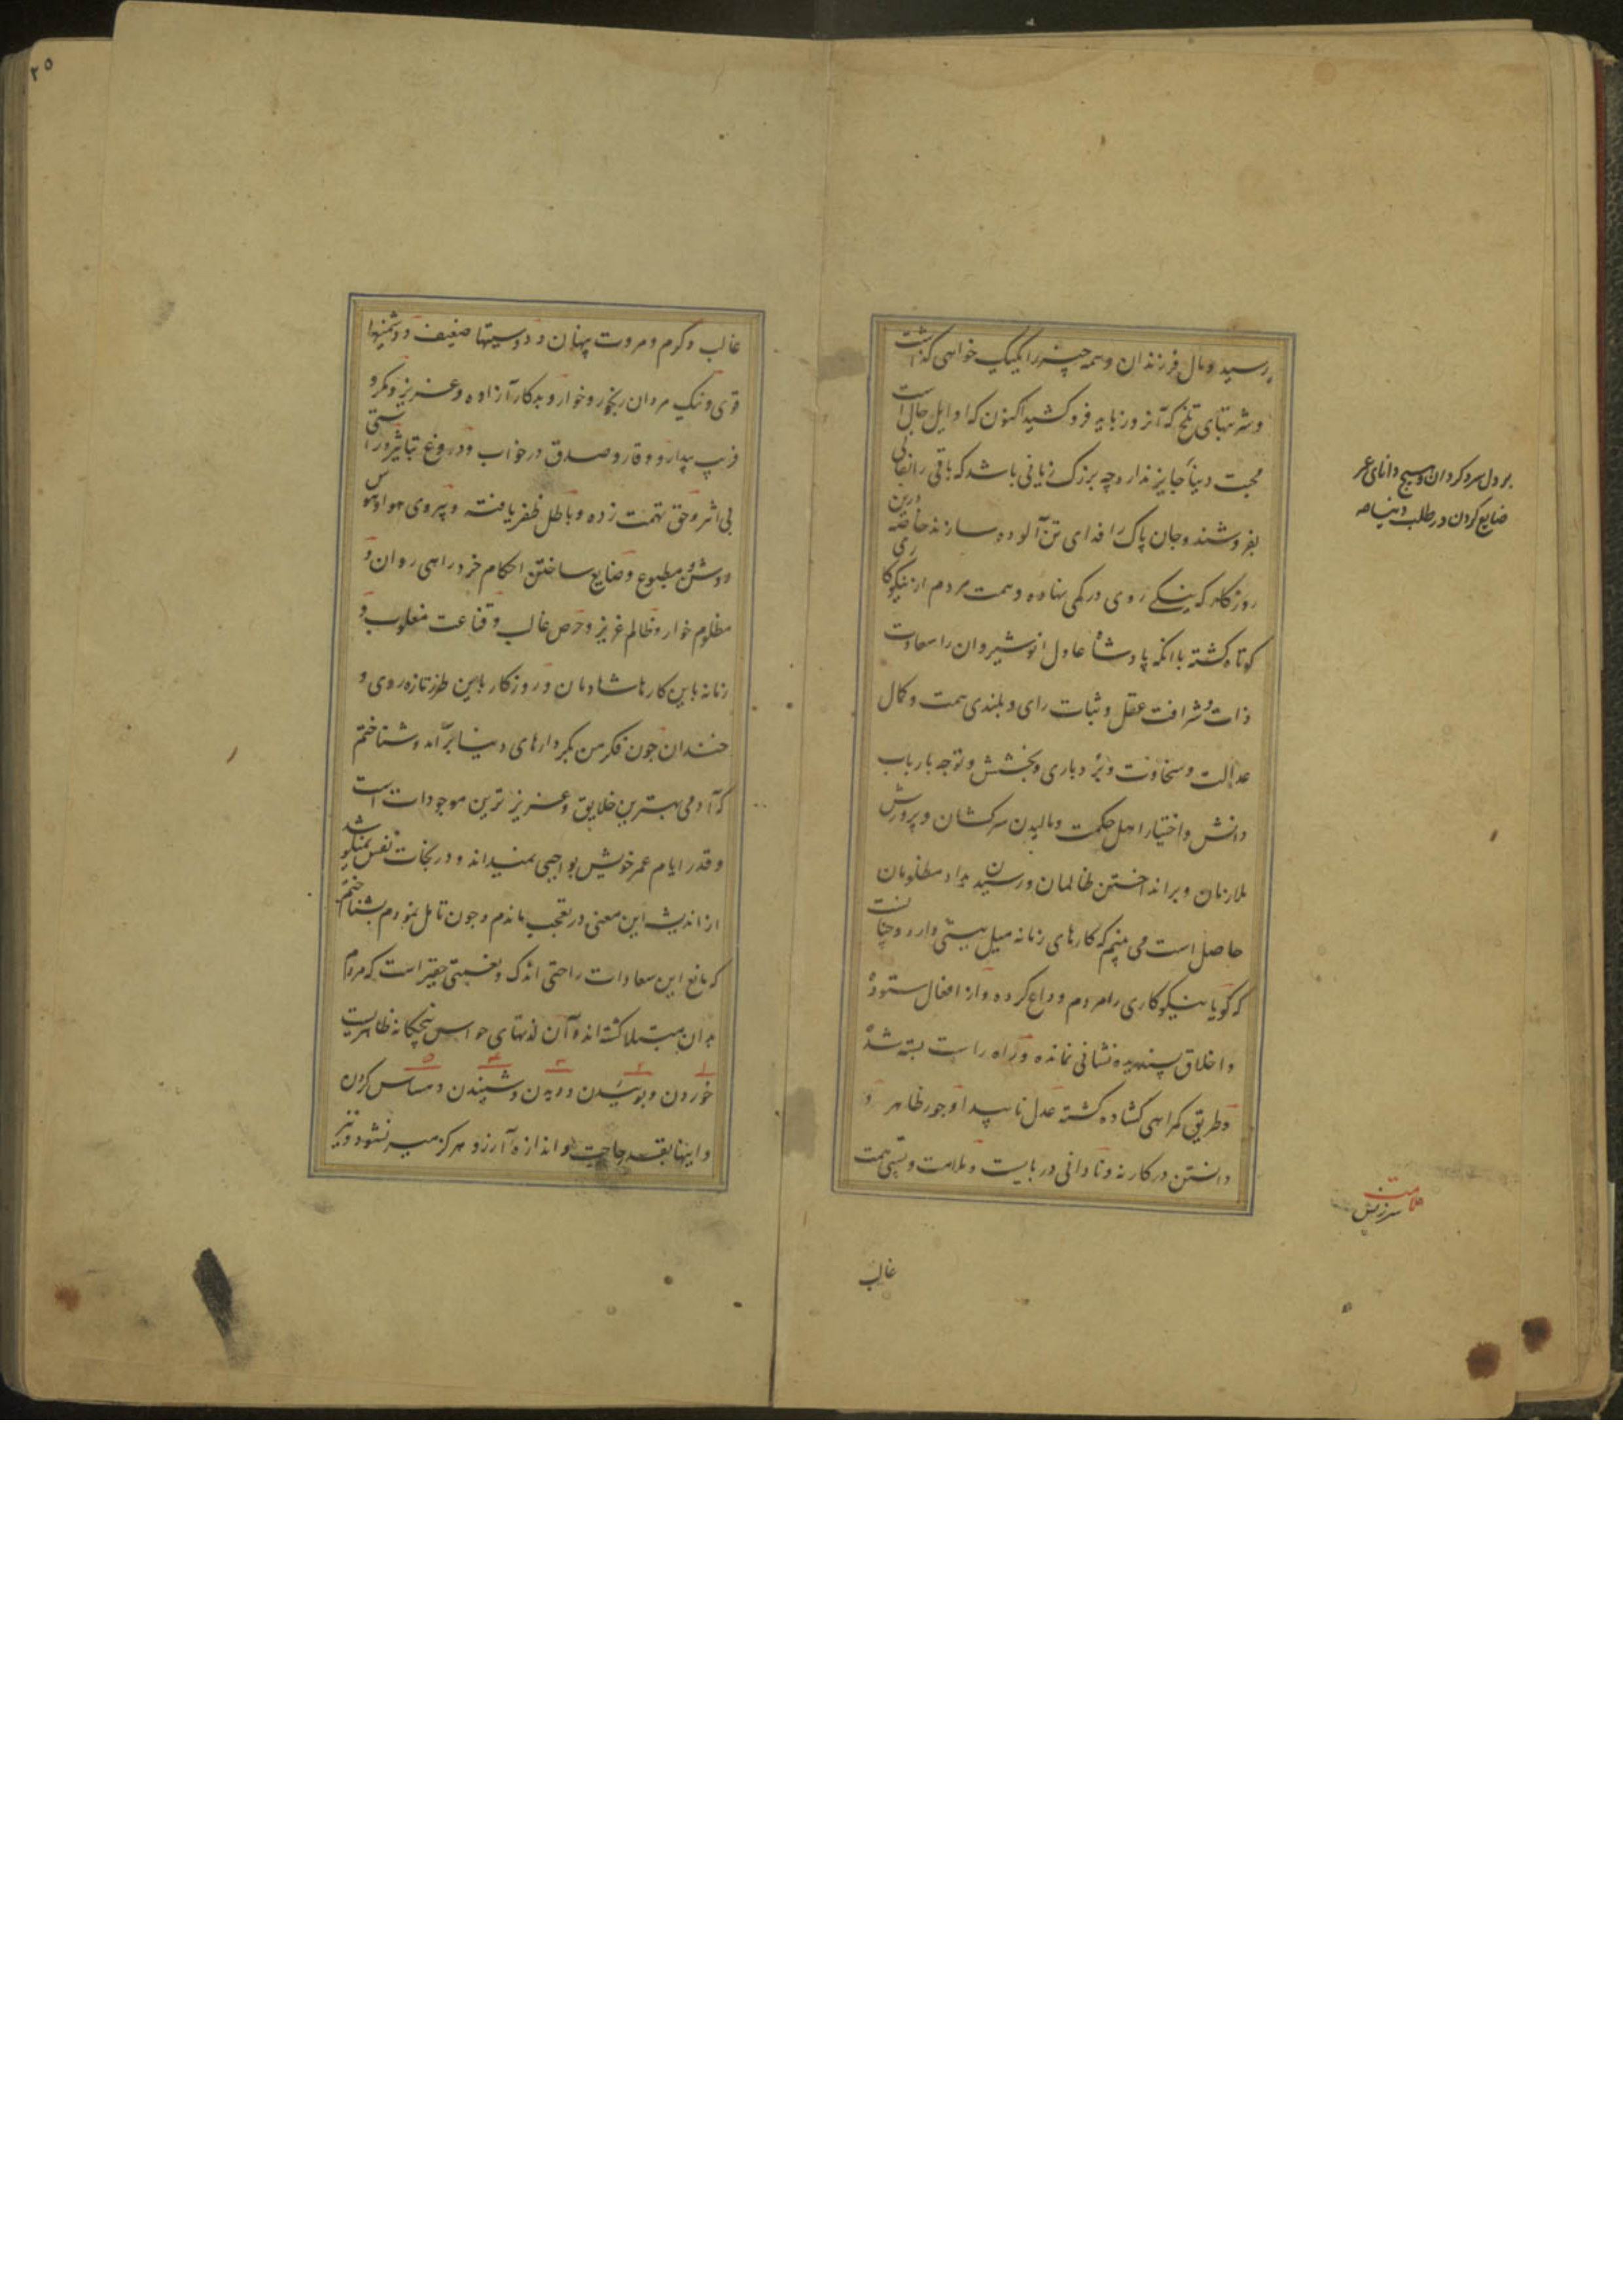 برسید و مال و فرزندان و همه چیز را یکیک خواهی گذاشت
و شربتهای تلخ که آنروزها به فروکشید اکنون که اوایل حال است
محبت دنیا جایز ندارد چه بزرک زیانی باشد که باقی را بفانی
بفروشند و جان پاک را فدای تن آلوده سازند خاصه درین
روزکار که نیکی روی در کمی نهاده و همت مردم از نیکوکاری
کوتاه کشته باانکه پادشاه عادل انوشیروان را سعادت
ذات و شرافت عقل و ثبات رای و بلندی همت و کمال
عدالت و سخاوت و بردباری و بخشش و توجه بارباب
دانش و اختیار اهل حکمت و مالیدن سرکشان و پرورش
ملازمان و برانداختن ظالمان و رسیدن بداد مظلومان
حاصل است می بینم که کارهای زمانه میل بپستی دارد و چنانست
که کویا نیکوکاری را مردم وداع کرده و از افعال ستوده
و اخلاق پسندیده نشانی نمانده و راه راست بسته شده
و طریق کمراهی کشاده کشته عدل ناپیدا و جور ظاهر و
دانستن در کار نه و نادانی در بایست و ملامت و پستی همت
غالب
بر دل سرد کردان و هیچ دانای عمر
ضایع کردن در طلب دنیا
ملامت
سرزنش
۲۵
غالب و کرم و مروت پنهان و دوستیها ضعیف و دشمنیها
قوی و نیک مردان رنجور و خوار و بدکار آزاده و عزیز و مکر و
فریب بیدار و وقار و صدق در خواب و دروغ بتاثیر و راستی
بی اثر و حق تهمت زده و باطل ظفر یافته و پیروی هوا و هوس
روشن و مطبوع و ضایع ساختن احکام خرد راهی روان و
مظلوم خوار و ظالم عزیز و حرص غالب و قناعت مغلوب و
زمانه باین کارها شادمان و روزکار باین طرز تازه روی و
خندان چون فکر من بکردارهای دنیا برآمد و شناختم
که آدمی بهترین خلایق و عزیز ترین موجودات است
و قدر ایام عمر خویش بواجبی نمیداند و در نجات نفس نمیکوشد
از اندیشه این معنی در تعجب ماندم و چون تامل نمودم بشناختم
که مانع این سعادات راحتی اندک و نعمتی حقیر است که مردم
بدان مبتلا کشته اند و آن لذتهای حواس پنجکانه ظاهریست
۱ ۲ ۳ ۴ ۵
خوردن و بوییدن و دیدن و شنیدن و مساس کردن
و اینها بقدر حاجت و اندازه آرزو هرکز میسر نشود و نیز